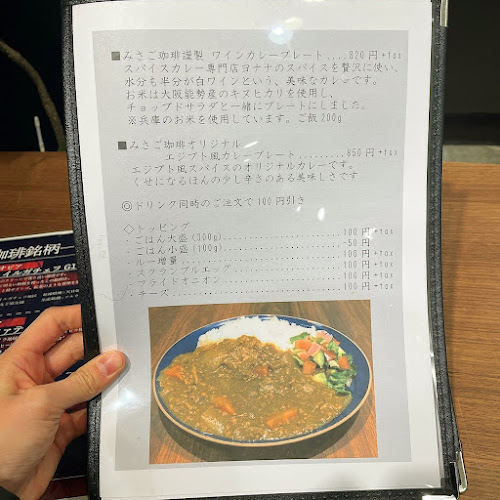 ■みさご珈琲謹製 ワインカレープレート....820円+tax
スパイスカレー専門店ヨナナのスパイスを贅沢に使い、
水分も半分が白ワインという、美味なカレーです。
お米は大阪能勢産のキヌヒカリを使用し、
チョップドサラダと一緒にプレートにしました。
※兵庫のお米を使用しています。ご飯200g
■みさご珈琲オリジナル
エジプト風カレープレート........850円+tax
エジプト風スパイスのオリジナルカレーです。
くせになるほんの少し辛さのある美味しさです
◎ドリンク同時のご注文で100円引き
◇トッピング
・ごはん大盛(300g)....................100円+tax
・ごはん小盛(100g)....................-50円
・ルー増量............................100円+tax
・スクランブルエッグ..................100円+tax
・フライドオニオン....................100円+tax
・チーズ..............................100円+tax
珈琲銘柄
イルガチェフェ G1